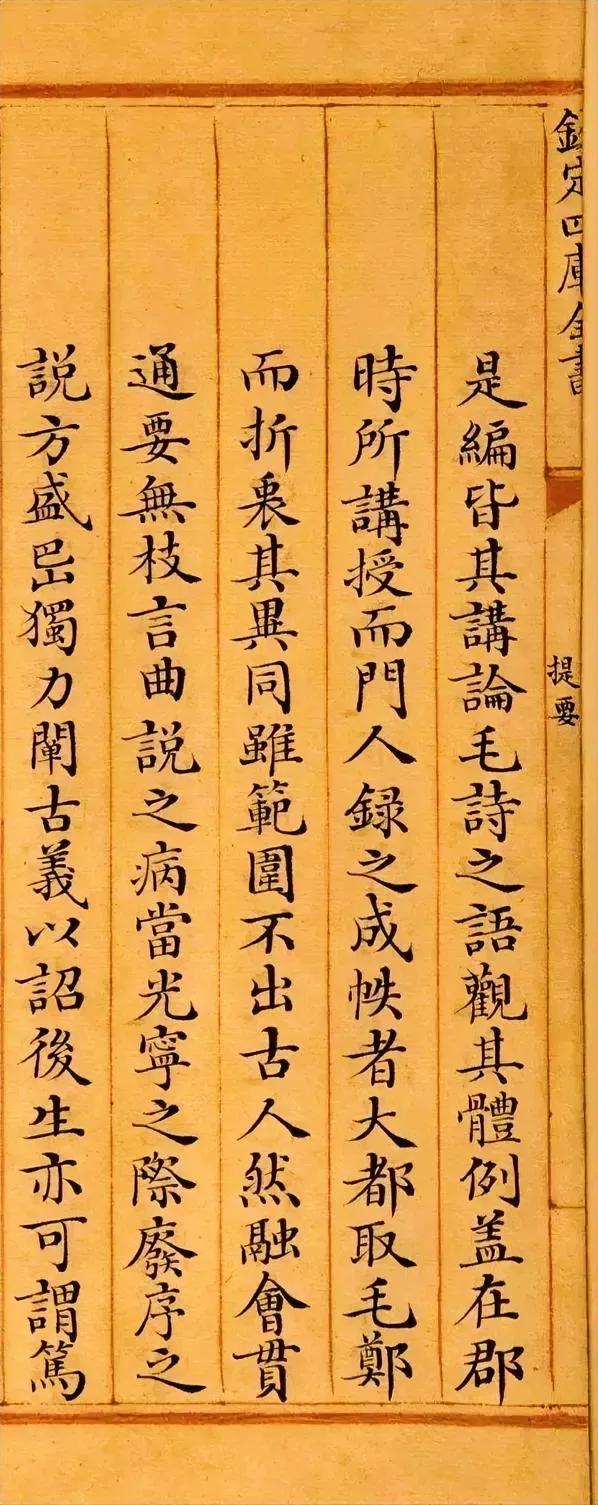 欽定四庫全書
提要
是編皆其講論毛詩之語觀其體例盖在郡
時所講授而門人録之成帙者大都取毛鄭
而折衷其異同雖範圍不出古人然融會貫
通要無枝言曲說之病當光寧之際廢序之
說方盛岊獨力闡古義以詔後生亦可謂篤